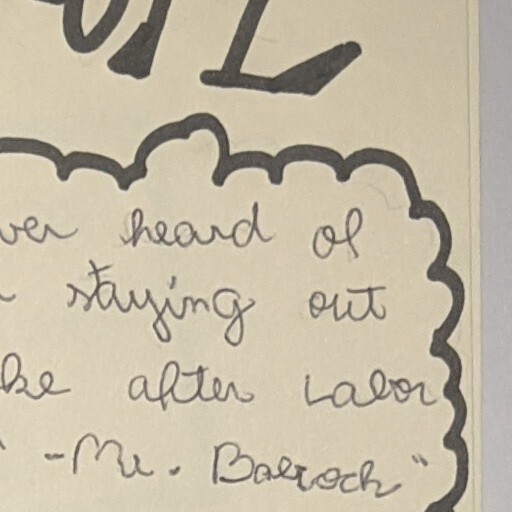 ver heard of
staying out
ke after Labor
-Mr. Babcock"